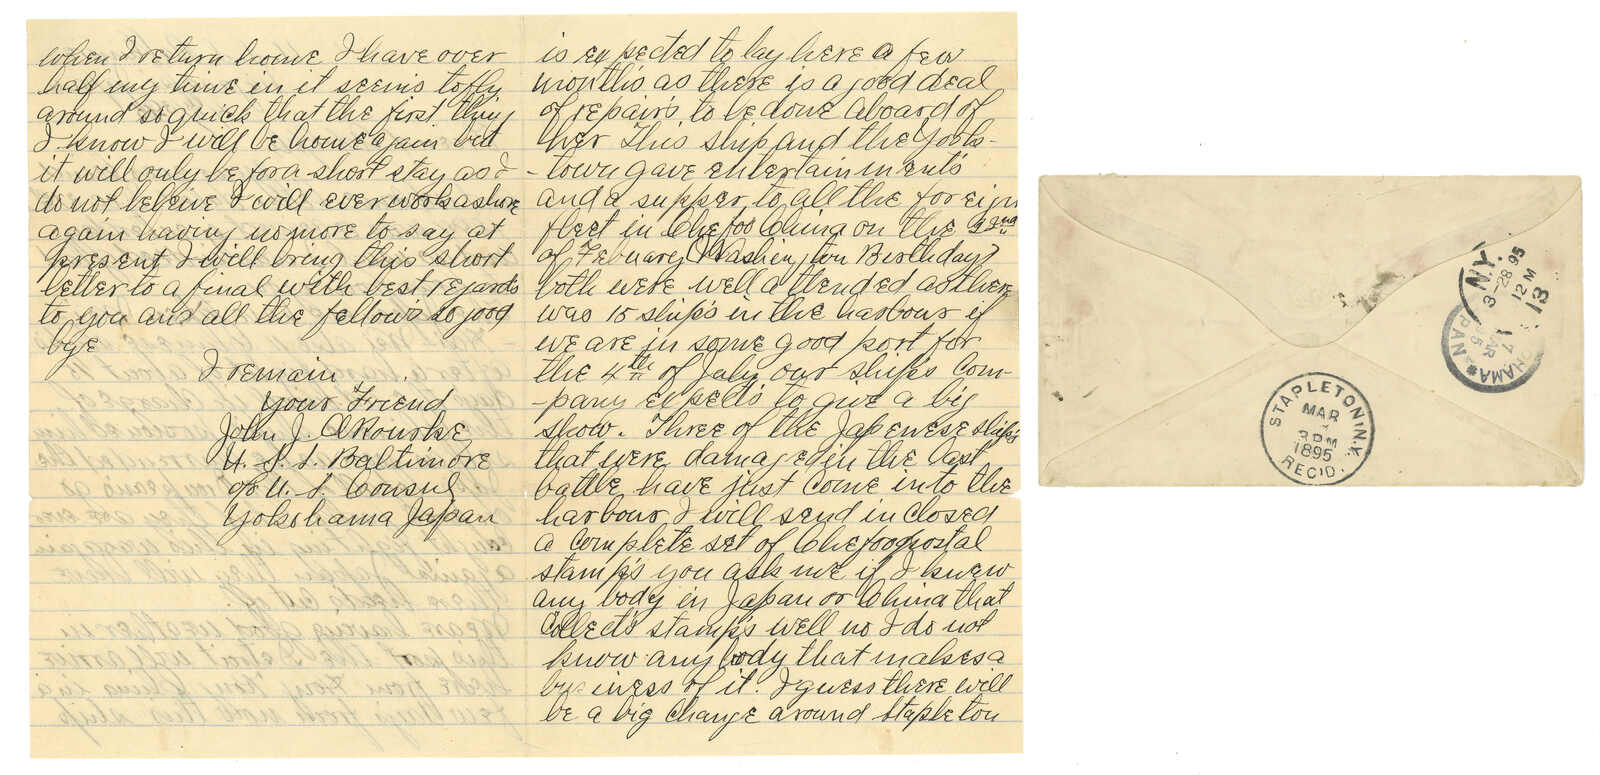 when I return home I have over
half my time in it seems to fly
around so quick that the first thing
I know I will be home again but
it will only be for a short stay as I
do not beleive I will ever work ashore
again having no more to say at
present I will bring this short
letter to a final with best regards
to you and all the fellow's so good
bye
I remain
Your Friend
John J. O'Rourke
U. S. S. Baltimore
c/o U. S. Consul
Yokohama Japan
is expected to lay here a few
months as there is a good deal
of repair's to be done aboard of
her This ship and the York-
-town gave entertainment's
and a supper to all the foreign
fleet in Chefoo China on the 22nd
of Febuary (Washington Birthday)
both were well attended as there
was 15 ship's in the harbour if
we are in some good port for
the 4th of July our ship's Com-
-pany expect's to give a big
show. Three of the Japenese ship's
that were damaged in the last
battle have just come into the
harbour I will send in closed
a complete set of Chefoo postal
stamp's you ask me if I knew
any body in Japan or China that
Collect's stamp's well no I do not
know any body that makes a
business of it. I guess there will
be a big change around Stapleton
N.Y.
3-28 95
12 M
13
STAPLETON, N.Y.
MAR
3 PM
1895
REC'D.